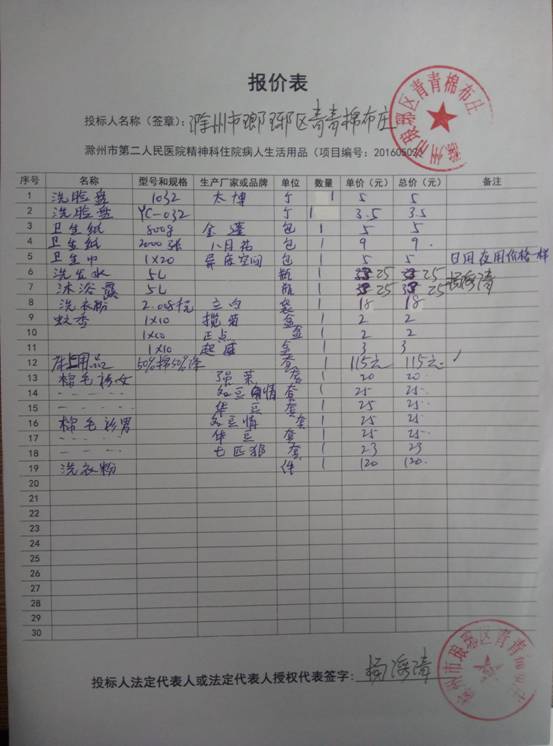 报价表
投标人名称（签章）：滁州市琅琊区青青棉布庄
滁州市第二人民医院精神科住院病人生活用品（项目编号：201605022
序号 名称 型号和规格 生产厂家或品牌 单位 数量 单价（元） 总价（元） 备注
1 洗脸盘 1032 太博 个 1 5 5
2 洗脸盘 YC-032 个 1 3.5 3.5
3 卫生纸 800g 金莲 包 1 5 5
4 卫生纸 2000张 八月花 包 1 9 9
5 卫生巾 1×20 空间 包 1 5 5 日用夜用价格一样
6 洗发水 5L 瓶 1 25 25
7 沐浴露 5L 瓶 1 25 25
8 洗衣粉 立白 袋 1 18 18
9 蚊香 1×10 榄菊 盒 1 2 2
10 1×10 正点 盒 1 2 2
11 1×10 盒 1 3 3
12 床上用品 50%棉50%涤 套 1 115元 115元
13 棉毛衫女 套 1 20 20
14 - - - - - 红豆 情 套 1 25 25
15 - - - - - 华豆 套 1 25 25
16 棉毛衫男 红豆情 套 1 25 25
17 - - - - 华豆 套 1 25 25
18 - - - - 七匹狼 套 1 23 23
19 洗衣粉 件 1 120 120
20
21
22
23
24
25
26
27
28
29
30
投标人法定代表人或法定代表人授权代表签字：
滁州市琅琊区青青棉布庄
滁州市琅琊区青青棉布庄